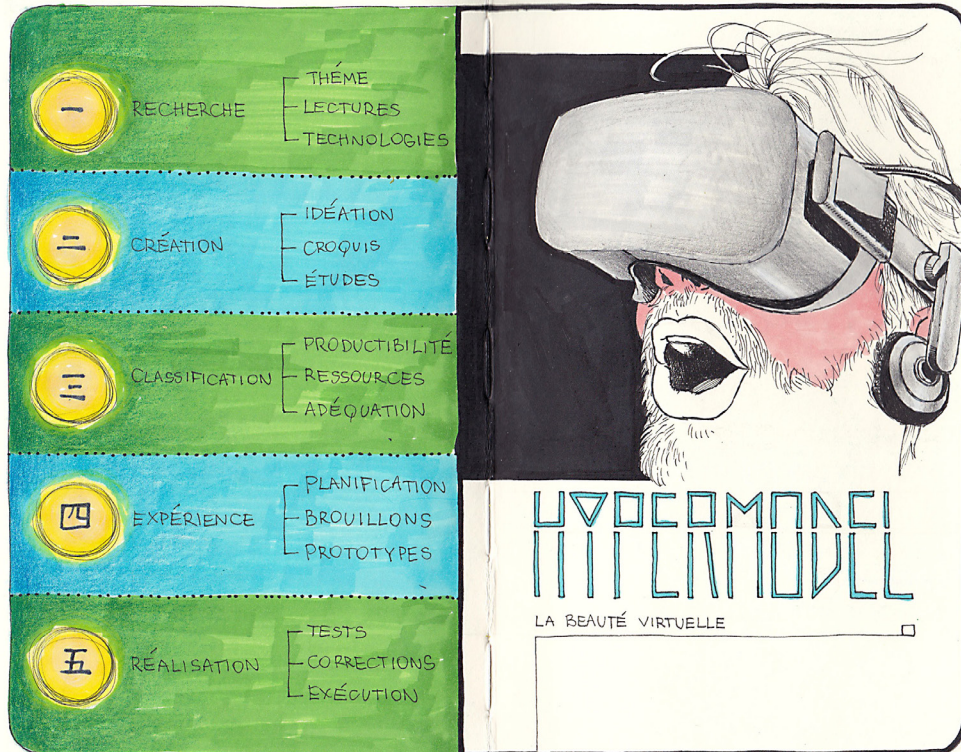 一
RECHERCHE
THÉME
LECTURES
TECHNOLOGIES
二
CRÉATION
IDÉATION
CROQUIS
ÉTUDES
三
CLASSIFICATION
PRODUCTIBILITÉ
RESSOURCES
ADÉQUATION
四
EXPÉRIENCE
PLANIFICATION
BROUILLONS
PROTOTYPES
五
RÉALISATION
TESTS
CORRECTIONS
EXÉCUTION
HYPERMODEL
LA BEAUTÉ VIRTUELLE